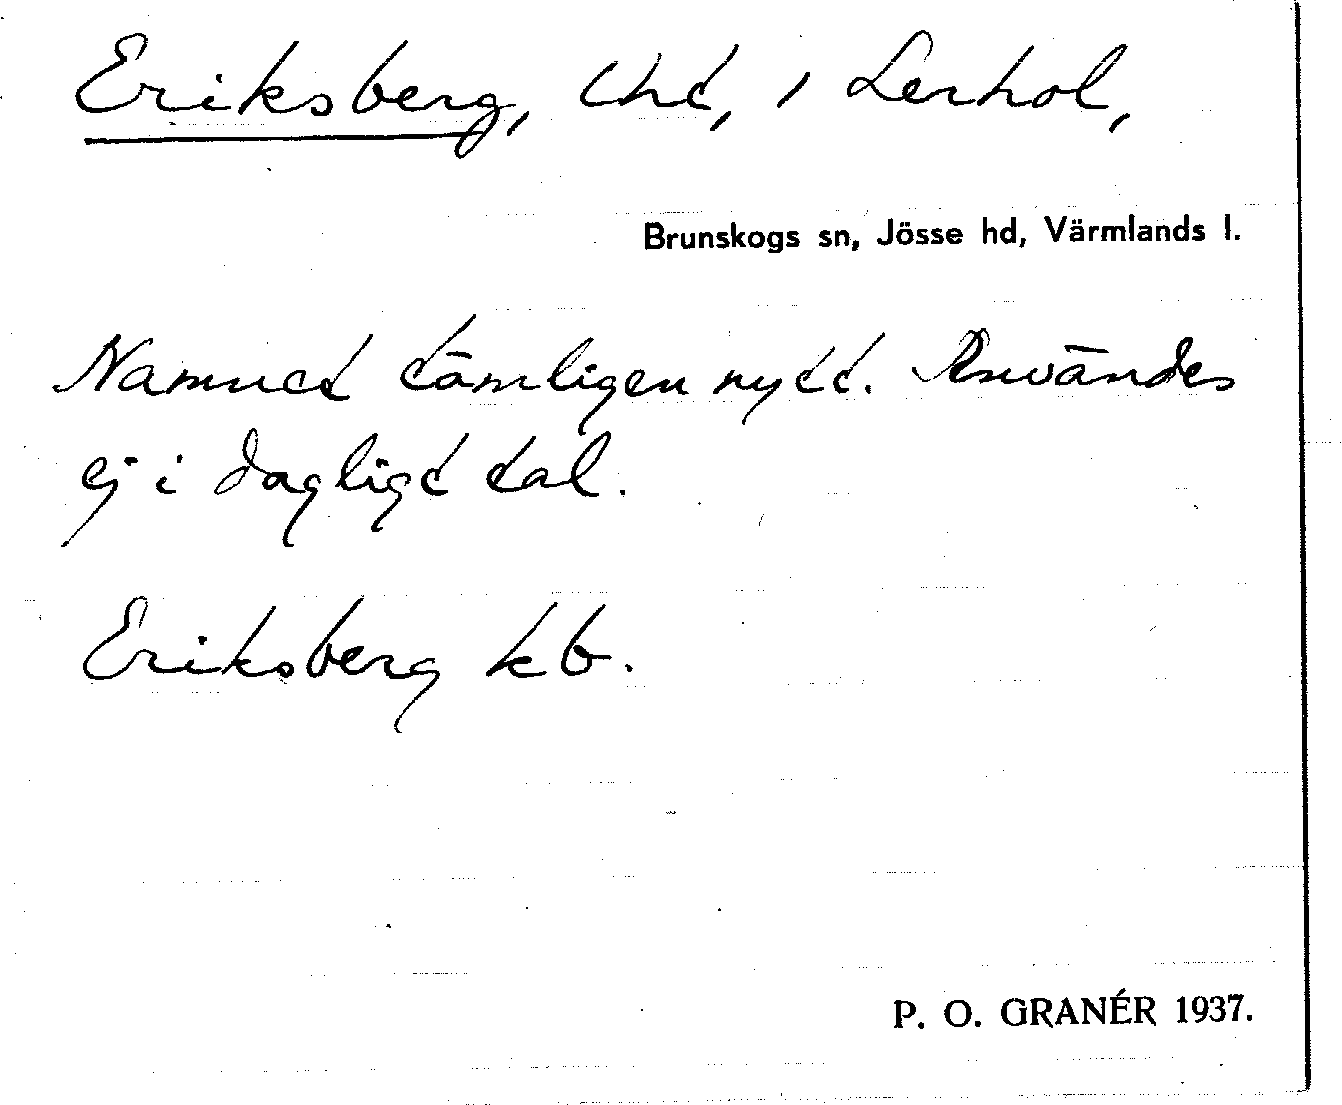 Eriksberg, lht, i Lerhol,
Brunskogs sn, Jösse hd, Värmlands l.
Namnet tämligen nytt. Användes
ej i dagligt tal.
Eriksberg kb.
P. O. GRANÉR 1937.